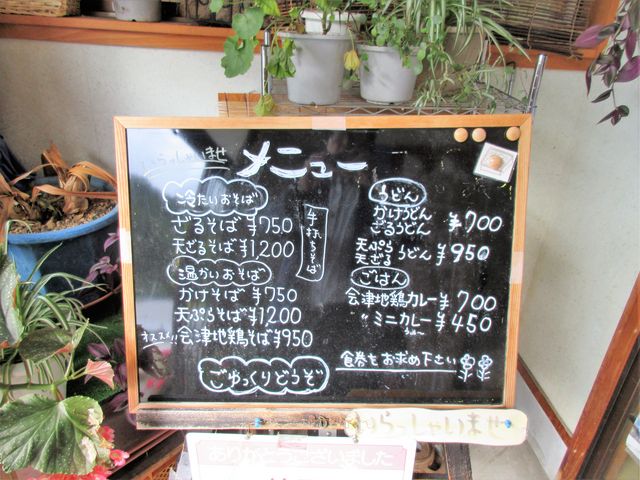 いらっしゃいませ
メニュー
冷たいおそば
ざるそば ¥750
天ざるそば ¥1,200
手打ちそば
温かいおそば
かけそば ¥750
天ぷらそば ¥1,200
オススメ!! 会津地鶏そば ¥950
ごゆっくりどうぞ
うどん
かけうどん
ざるうどん ¥700
天ぷら
天ざる うどん ¥950
ごはん
会津地鶏カレー ¥700
〃 ミニカレー ¥450
食券をお求め下さい
いらっしゃいませ
ありがとうございました